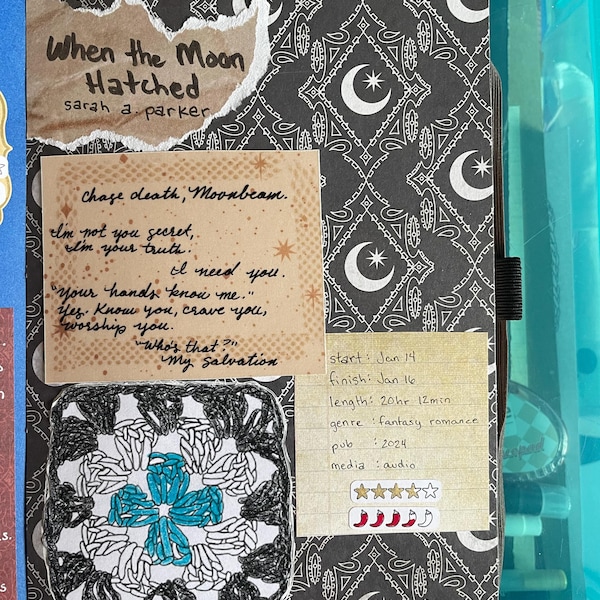 When the Moon
Hatched
sarah a. parker
Chase death, Moonbeam.
I'm not you secret,
I'm your truth.
I need you.
"Your hands know me."
Yes. Know you, crave you,
worship you.
"Who's that?"
My Salvation
start: Jan 14
finish: Jan 16
length: 20hr 12min
genre: fantasy romance
pub: 2024
media: audio